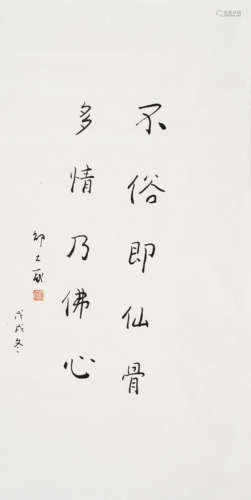 不俗即仙骨
多情乃佛心
戊戌冬